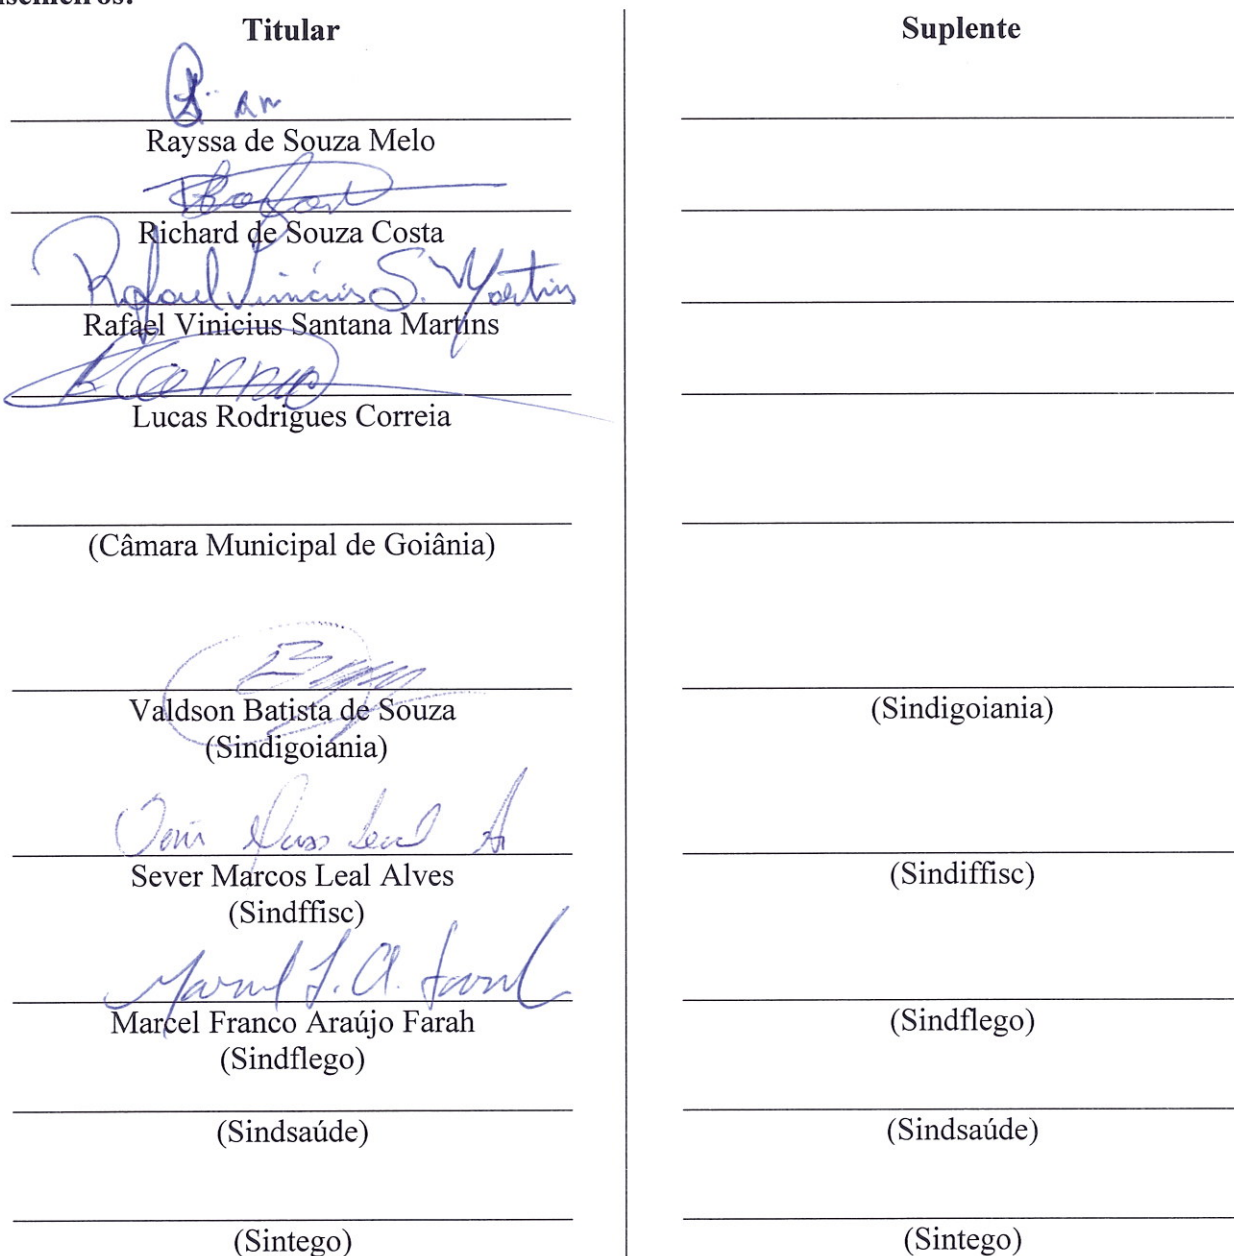 Titular
Rayssa de Souza Melo
Richard de Souza Costa
Rafael Vinicius S. Martins
Rafael Vinicius Santana Martins
Lucas Rodrigues Correia
(Câmara Municipal de Goiânia)
Valdson Batista de Souza
(Sindigoiânia)
Sever Marcos Leal Alves
(Sindffisc)
Marcel F. A. Farah
Marcel Franco Araújo Farah
(Sindflego)
(Sindsaúde)
(Sintego)
Suplente
(Sindigoiania)
(Sindiffisc)
(Sindflego)
(Sindsaúde)
(Sintego)